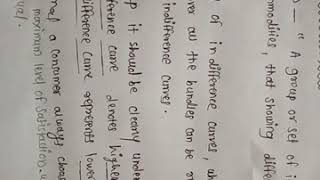 — "A group or set of i
mmodities, that showing differ
of indifference curves, wh
ver all the bundles can be
indifference curves.
p it should be clearly under
ference curve denotes highe
difference curve represents lower
a consumer always
maximum level of satisfaction